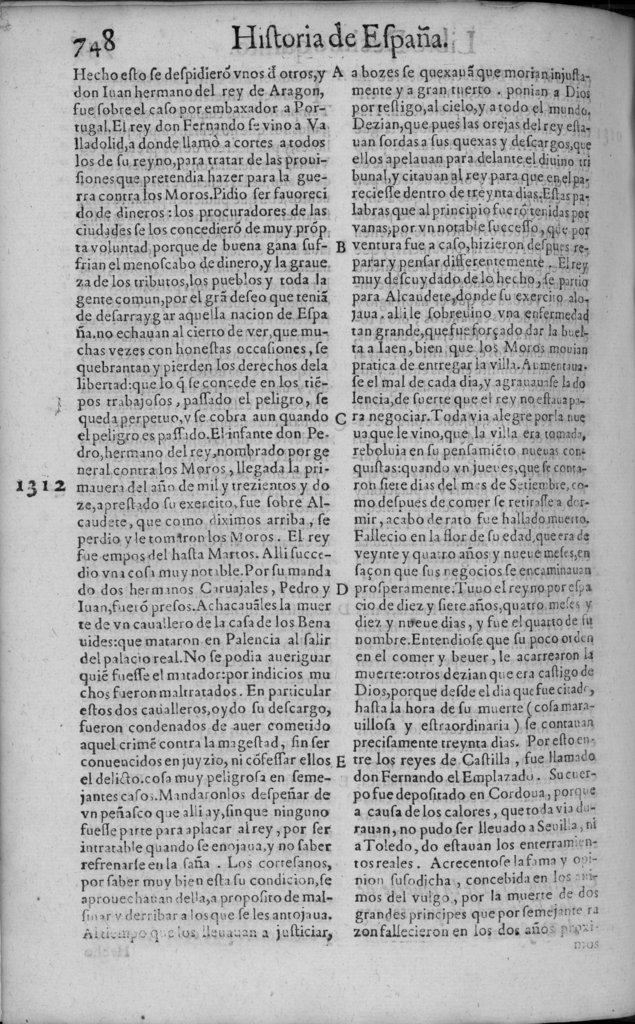 748
Historia de España.
Hecho esto se despidieró vnos đ otros,y
don Iuan hermano del rey de Aragon,
fue sobre el caso por embaxador a Por-
tugal.El rey don Fernando se vino a Va
lladolid,a donde llamò a cortes a todos
los de su reyno,para tratar de las proui-
siones que pretendia hazer para la gue-
rra contra los Moros.Pidio ser fauoreci
do de dineros : los procuradores de las
ciudades se los concedieró de muy próp
ta voluntad porque de buena gana suf-
frian el menoscabo de dinero,y la graue
za de los tributos,los pueblos y toda la
gente comun,por el grã deseo que teniã
de desarraygar aquella nacion de Espa
ña.no echauan al cierto de ver,que mu-
chas vezes con honestas occasiones, se
quebrantan y pierden los derechos dela
libertad:que lo q̃ se concede en los tiẽ-
pos trabajosos, passado el peligro, se
queda perpetuo,y se cobra aun quando
el peligro es passado.El infante don Pe-
dro,hermano del rey,nombrado por ge
neral contra los Moros, llegada la pri-
1312
mauera del año de mil y trezientos y do
ze,aprestado su exercito, fue sobre Al-
caudete, que como diximos arriba, se
perdio y le tomaron los Moros. El rey
fue empos del hasta Martos. Alli succe-
dio vna cosa muy notable.Por su manda
do dos hermanos Caruajales, Pedro y
Iuan,fueró presos.Achacauãles la muer
te de vn cauallero de la casa de los Bena
uides:que mataron en Palencia al salir
del palacio real.No se podia aueriguar
quiẽ fuesse el matador:por indicios mu
chos fueron maltratados. En particular
estos dos caualleros,oydo su descargo,
fueron condenados de auer cometido
aquel crimẽ contra la magestad, sin ser
conuencidos en juyzio, ni cófessar ellos
el delicto.cosa muy peligrosa en seme-
jantes casos.Mandaronlos despeñar de
vn peñasco que alli ay,sin que ninguno
fuesse parte para aplacar al rey, por ser
intratable quando se enojaua,y no saber
refrenarse en la saña . Los cortesanos,
por saber muy bien esta su condicion,se
aprouechauan della,a proposito de mal-
sinar y derribar a los que se les antojaua.
Al tiempo que los lleuauan a justiciar,
A
B
C
D
E
a bozes se quexauã que morian injusta-
mente y a gran tuerto . ponian a Dios
por testigo,al cielo,y a todo el mundo.
Dezian,que pues las orejas del rey esta-
uan sordas a sus quexas y descargos,que
ellos apelauan para delante el diuino tri
bunal,y citauan al rey para que en el pa-
reciesse dentro de treynta dias.Estas pa-
labras que al principio fueró tenidas por
vanas,por vn notable successo, que por
ventura fue a caso,hizieron despues re-
parar y pensar differentemente . El rey
muy descuydado de lo hecho,se partio
para Alcaudete,donde su exercito alo-
jaua.alli le sobreuino vna enfermedad
tan grande,que fue forçado dar la buel-
ta a Iaen, bien que los Moros mouian
pratica de entregar la villa.Aumentaua-
se el mal de cada dia,y agrauauase la do
lencia,de suerte que el rey no estaua pa-
ra negociar.Toda via alegre por la nue
ua que le vino,que la villa era tomada,
reboluia en su pensamiẽto nueuas con-
quistas:quando vn jueues,que se conta-
ron siete dias del mes de Setiembre,co-
mo despues de comer se retirasse a dor-
mir, acabo de rato fue hallado muerto.
Fallecio en la flor de su edad,que era de
veynte y quatro años y nueue meses,en
saçon que sus negocios se encaminauan
prosperamente.Tuuo el reyno por espa
cio de diez y siete.años,quatro meses y
diez y nueue dias, y fue el quarto de su
nombre.Entendiose que su poco orden
en el comer y beuer, le acarrearon la
muerte:otros dezian que era castigo de
Dios,porque desde el dia que fue citado,
hasta la hora de su muerte (cosa mara-
uillosa y estraordinaria) se contauan
precisamente treynta dias. Por esto en-
tre los reyes de Castilla , fue llamado
don Fernando el Emplazado. Su cuer-
po fue depositado en Cordoua, porque
a causa de los calores, que toda via du-
rauan, no pudo ser lleuado a Seuilla, ni
a Toledo, do estauan los enterramien-
tos reales. Acrecentose la fama y opi-
nion susodicha , concebida en los ani-
mos del vulgo, por la muerte de dos
grandes principes que por semejante ra
zon fallecieron en los dos años proxi-
mos